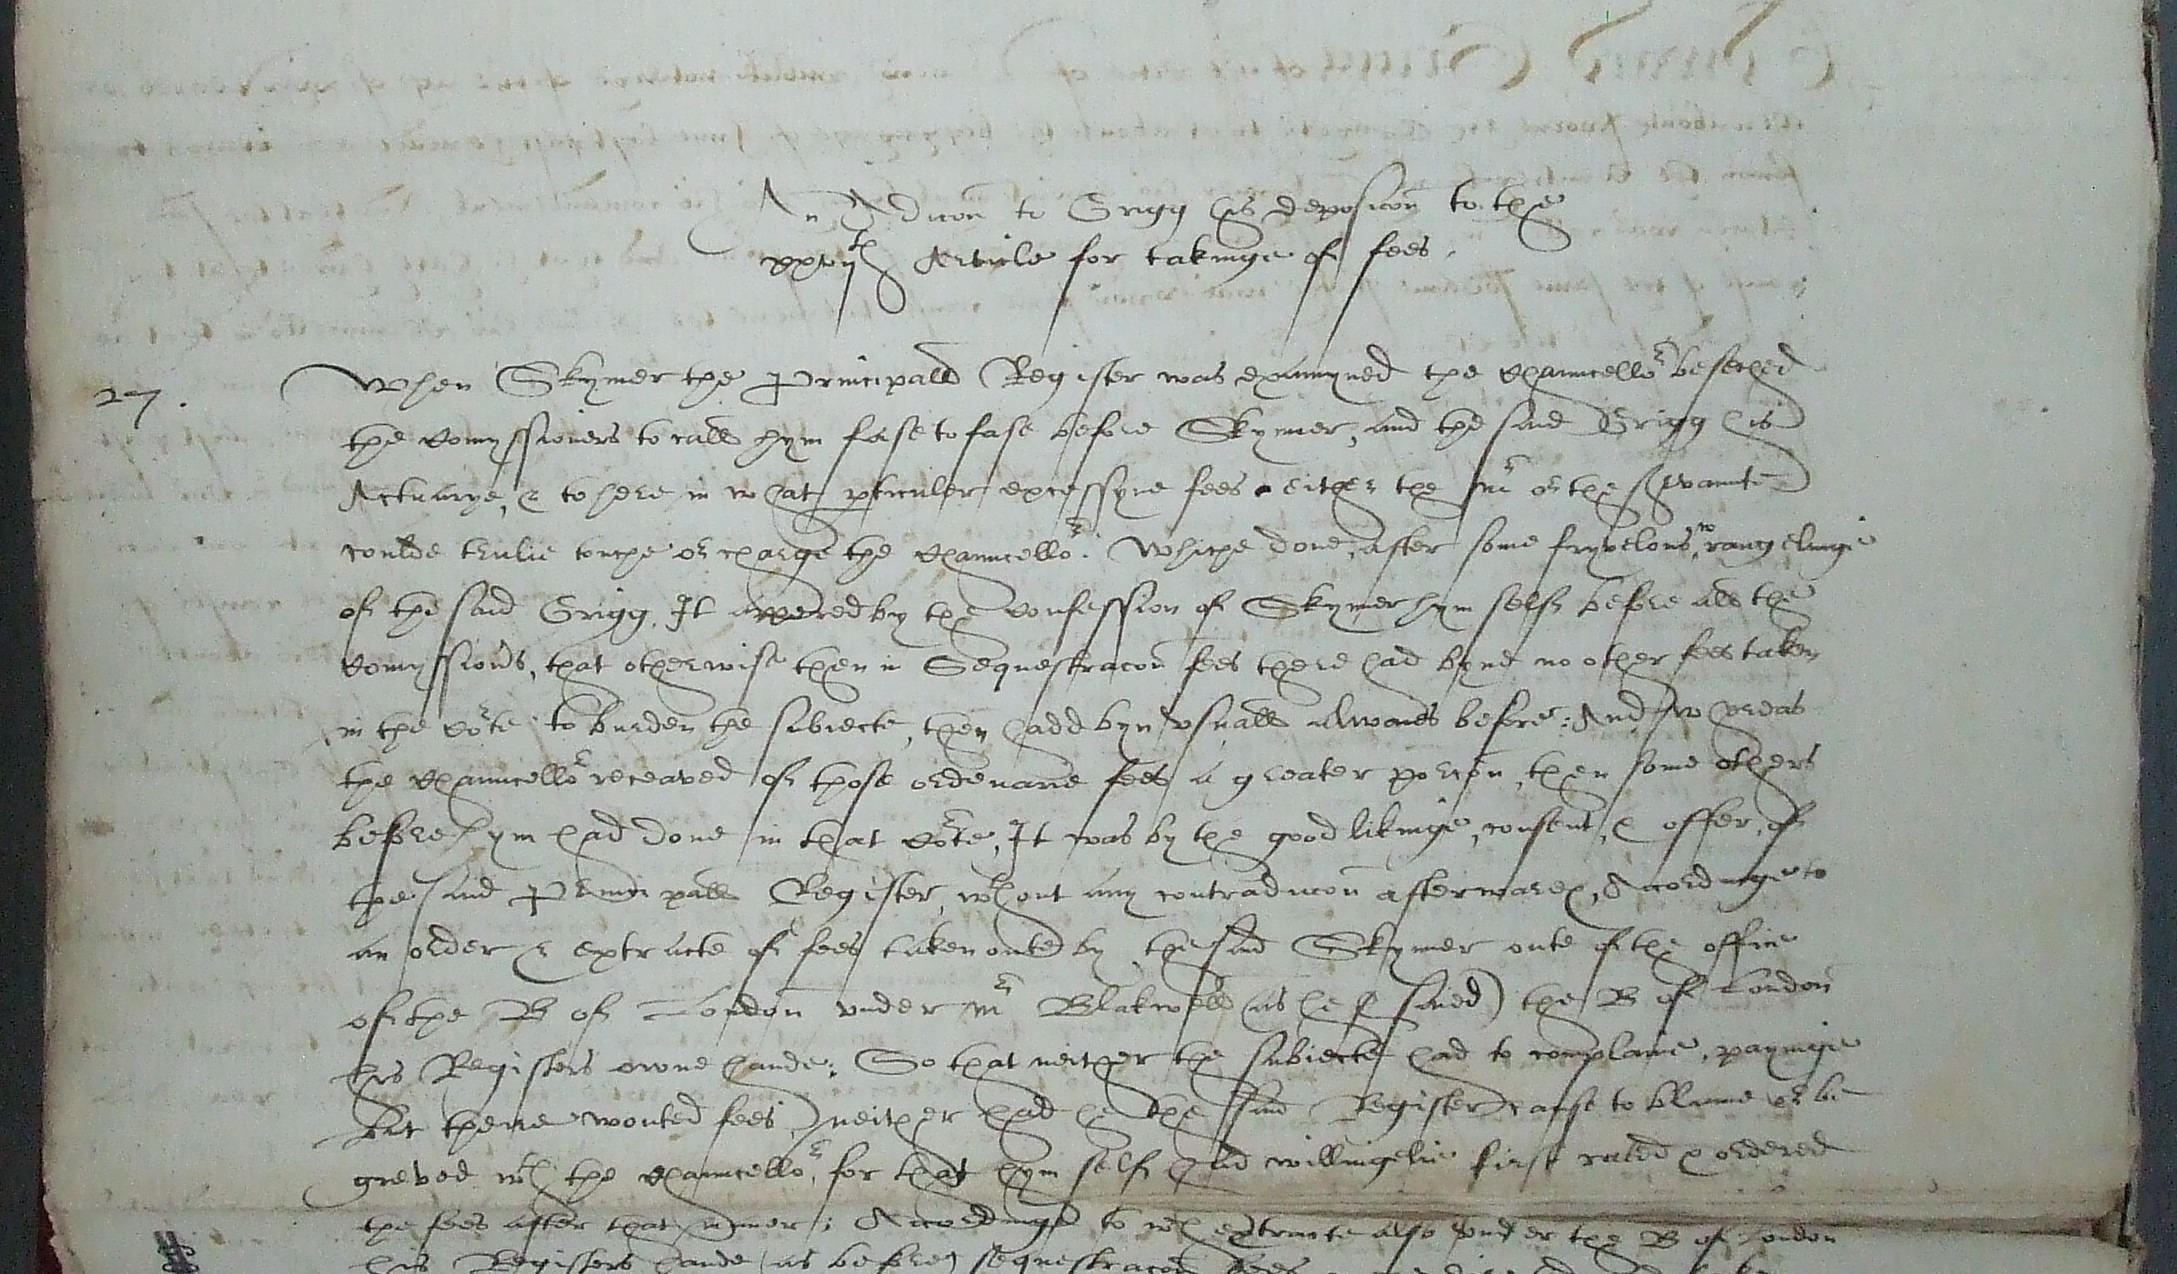 An Adicon to Grigg his deposicon to the
xxvijth Article for takinge of fees.
27. When Skymer the Principall Register was examyned the Chauncellor beseched
the Comyssioners to call hym fase to fase before Skymer, and the said Grigg his
Actuarye, & to here in what pticuler excessyve fees either the Mr or the Servaunte
coulde trulie touche or charge the Chauncellor. Whiche done, after some fryvelous wrangelinge
of the said Grigg, It appered by the Confession of Skymer hym self before all the
Comyssiors, that otherwise then in Sequestracon fees there had byne no other fees taken
in the Corte to burden the subiecte, then hadd byn vsuall alwaies before: And whereas
the Chauncellor receaved of those ordenarie fees a greater porcon, then some others
before hym had done in that Corte, It was by the good likinge, consent, & offer, of
the said Principall Register, wthout any contradiccon afterwarde, Accordinge to
an order & extracte of fees taken oute by the said Skymer oute of the office
of the B of London vnder Mr Blakwell (as he saied) the B of London
his Registers owne hande: So that neither the subiecte had to complaine, payinge
but there wonted fees, neither had he the said Register cause to blame or be
greved wth the Chauncellor, for that hym self had willingelie first rated & ordered
the fees after that maner: Accordinge to wch extracte also vnder the B of London
his Registers hande (as before) sequestracon fees